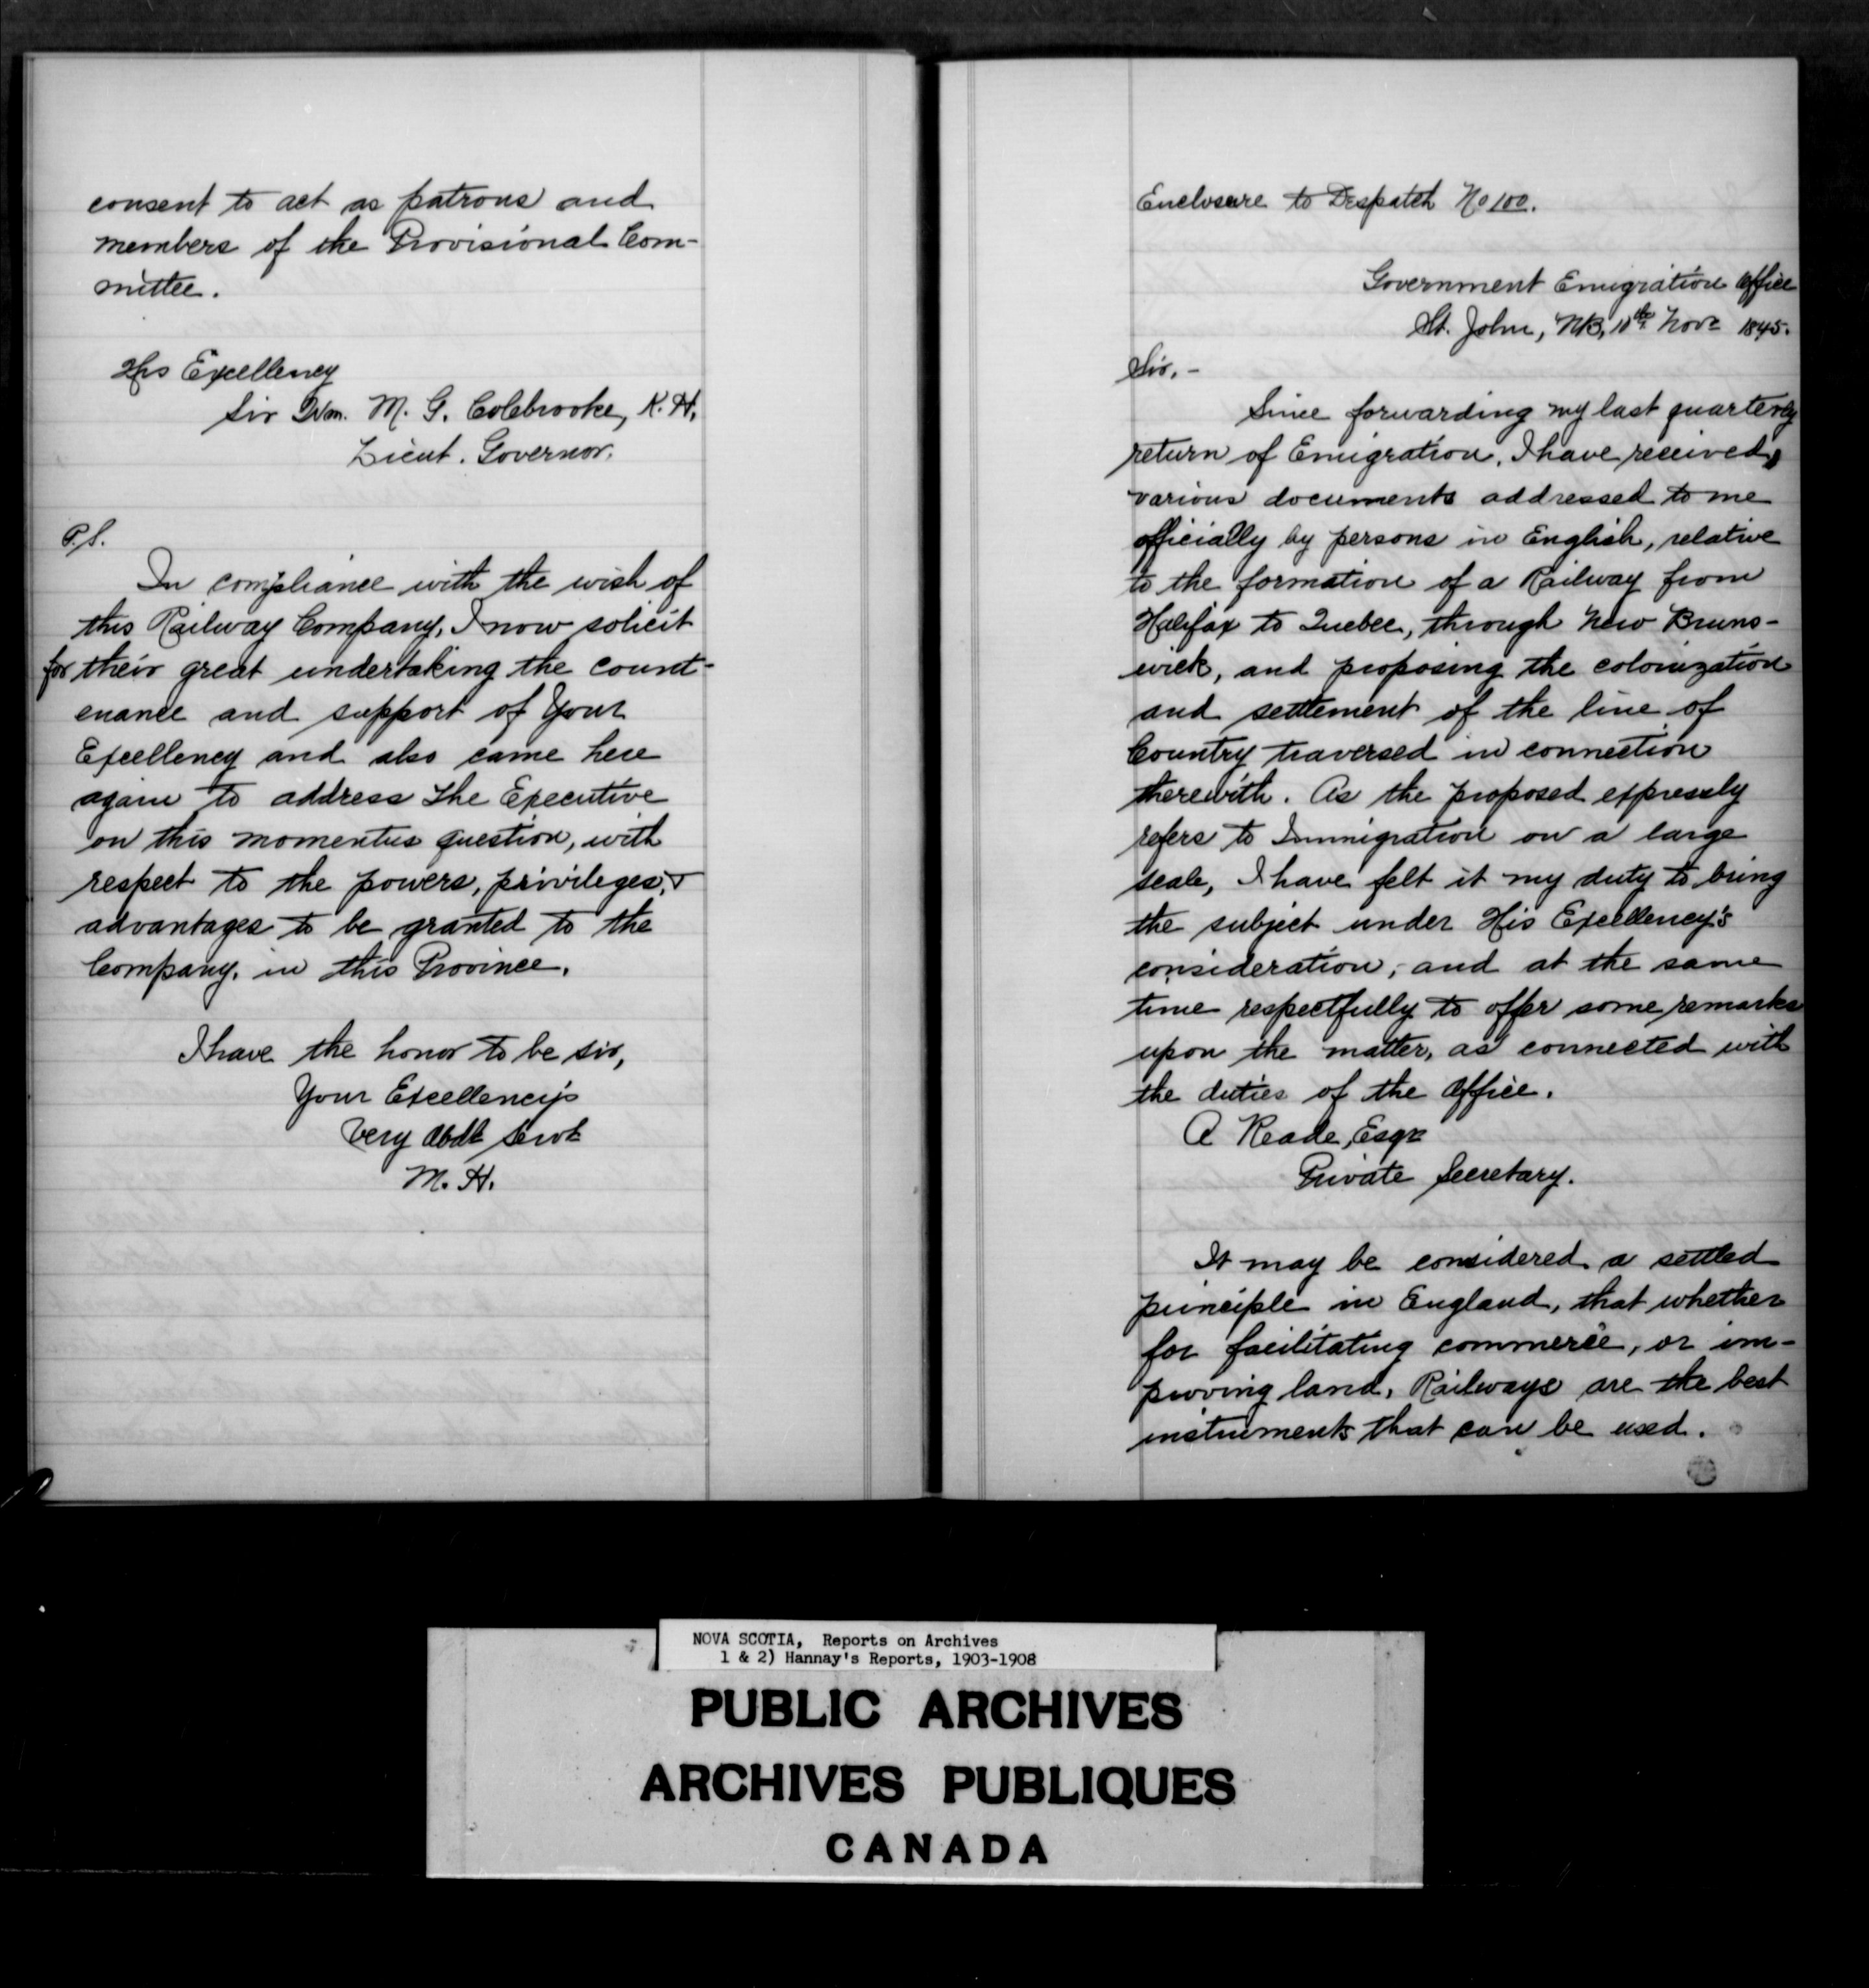 consent to act as patrons and
members of the Provisional Com-
mittee.
His Excellency
Sir Wm. M. G. Colebrooke, K. H.
Lieut. Governor.
P.S.
In compliance with the wish of
this Railway Company, I now solicit
for their great undertaking the count-
enance and support of Your
Excellency and also came here
again to address the Executive
on this momentus question, with
respect to the powers, privileges, &
advantages to be granted to the
Company, in this Province.
I have the honor to be sir,
Your Excellency's
Very Obdt Servt
M. H.
Enclosure to Despatch No 100.
Government Emigration Office
St. John, NB, 10th Novr 1845.
Sir,-
Since forwarding my last quarterly
return of Emigration, I have received,
various documents addressed to me
officially by persons in English, relative
to the formation of a Railway from
Halifax to Quebec, through New Bruns-
wick, and proposing the colonization
and settlement of the line of
Country traversed in connection
therewith. As the proposed expressly
refers to Immigration on a large
scale, I have felt it my duty to bring
the subject under His Excellency's
consideration; and at the same
time respectfully to offer some remarks
upon the matter, as connected with
the duties of the Office.
A Reade, Esqr
Private Secretary.
It may be considered a settled
principle in England, that whether
for facilitating commerce, or im-
proving land, Railways are the best
instruments that can be used.
NOVA SCOTIA, Reports on Archives
1 & 2) Hannay's Reports, 1903-1908
PUBLIC ARCHIVES
ARCHIVES PUBLIQUES
CANADA